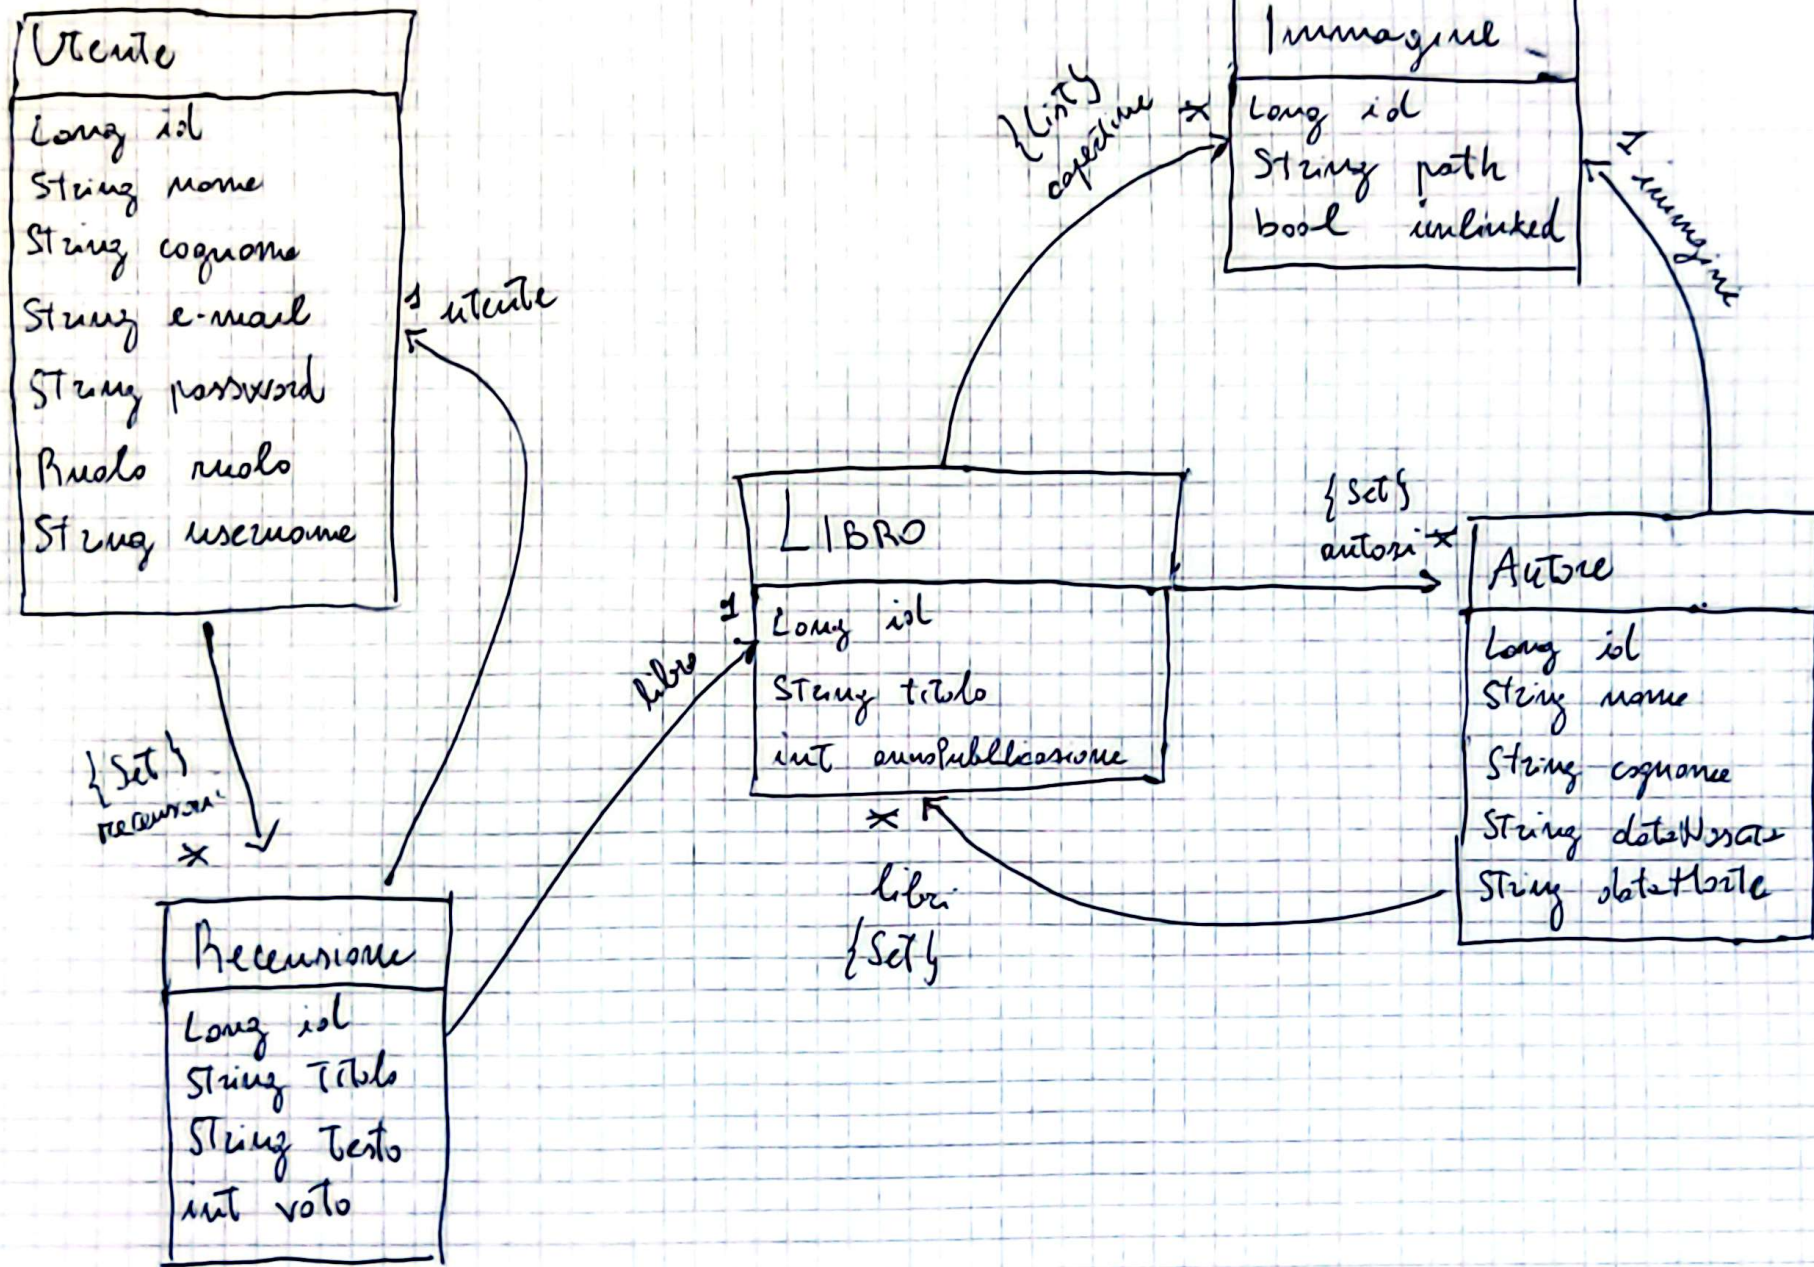 Utente
Long id
String nome
String cognome
String e-mail
String password
Ruolo ruolo
String username
1 utente
{Set}
recensioni
*
Recensione
Long id
String Titolo
String Testo
int voto
libro
1
LIBRO
Long id
String titolo
int annoPubblicazione
*
libri
{Set}
{List}
copertine
*
Immagine
Long id
String path
bool unlinked
1 immagine
{Set}
autori *
Autore
Long id
String nome
String cognome
String dataNascita
String dataMorte